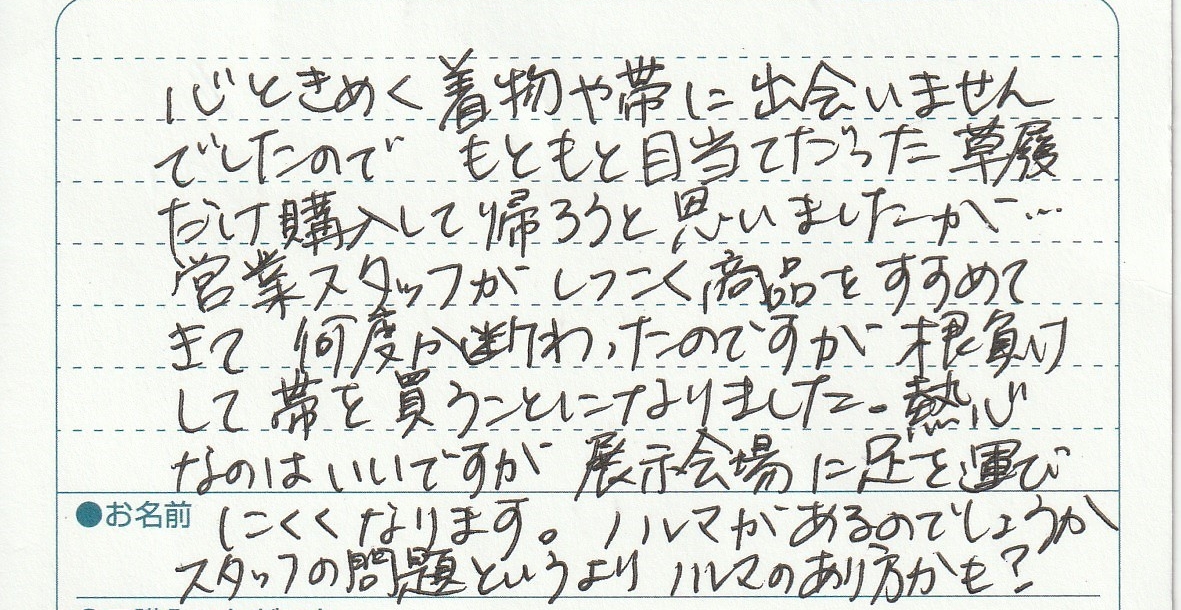 心ときめく着物や帯に出会いません
でしたので もともと目当てだった草履
だけ購入して帰ろうと思いましたが…
営業スタッフが しつこく商品をすすめて
きて 何度か断わったのですが 根負け
して帯を買うことになりました。熱心
なのはいいですが 展示会場に足を運び
●お名前 にくくなります。ノルマがあるのでしょうか
スタッフの問題というより ノルマのあり方かも?